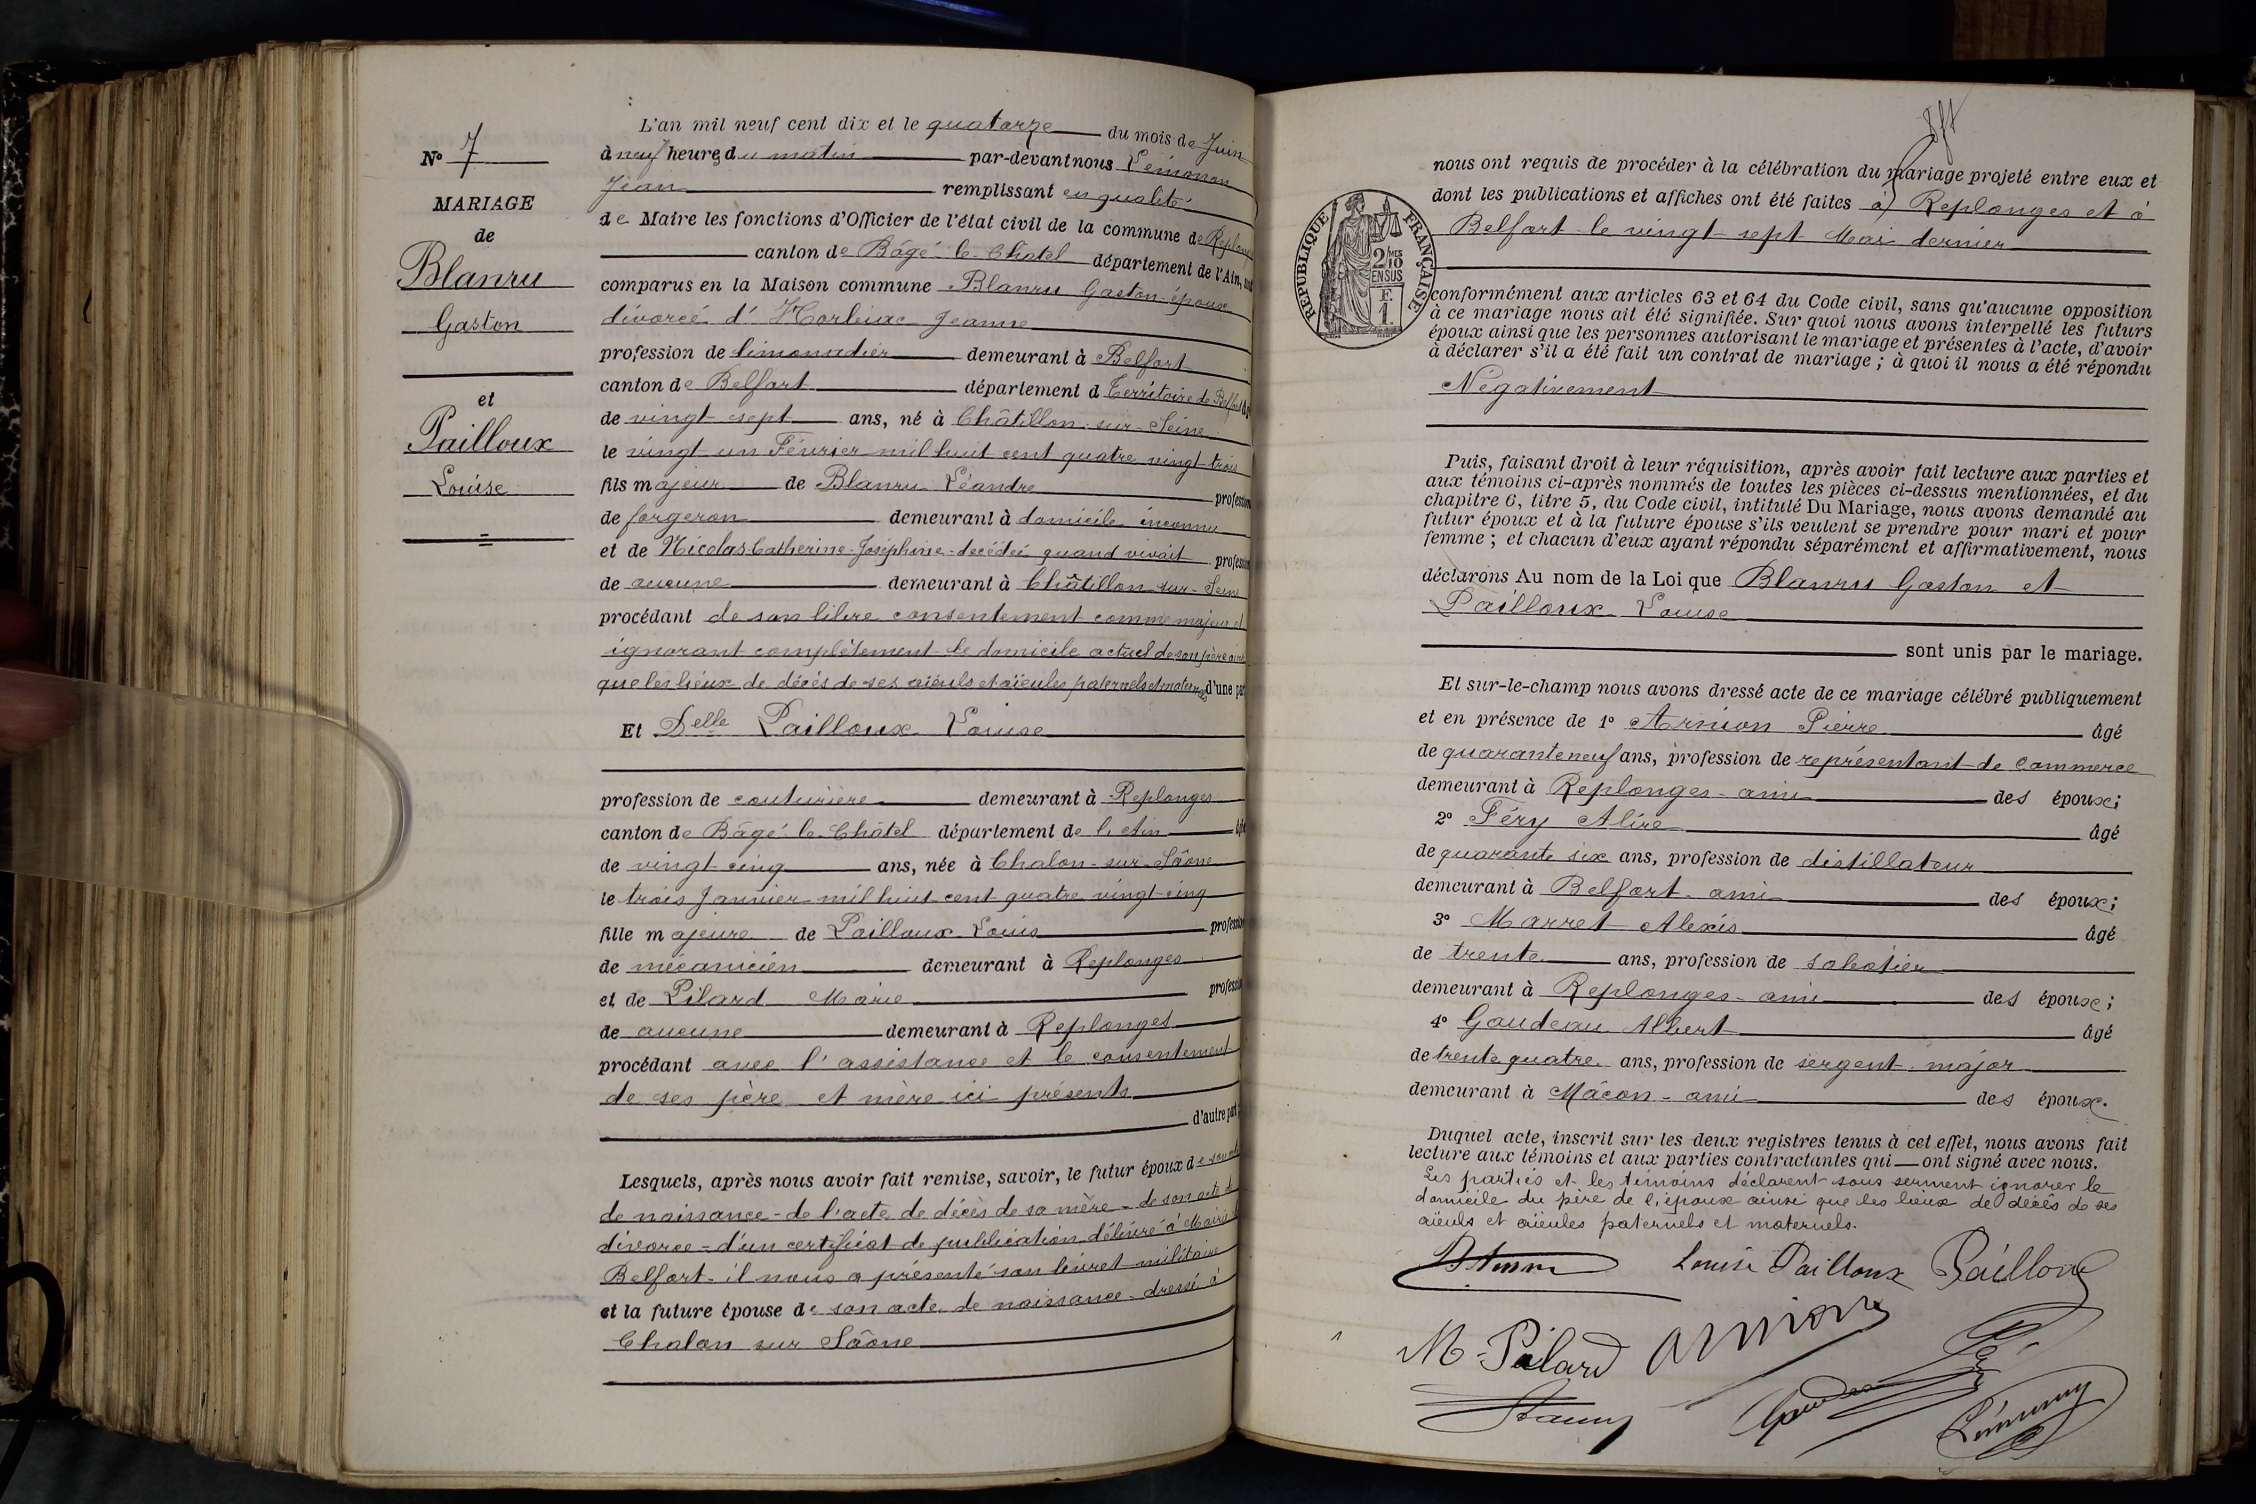 N° 7
MARIAGE
de
Blanru
Gaston
et
Pailloux
Louise
L'an mil neuf cent dix et le quatorze du mois de Juin
à neuf heures du matin par-devant nous Lémonon
Jean remplissant en qualité
de Maire les fonctions d'Officier de l'état civil de la commune de Replonges
canton de Bâgé-le-Châtel département de l'Ain, sont
comparus en la Maison commune Blanru Gaston époux
divorcé d' Jeanne
profession de limonadier demeurant à Belfort
canton de Belfort département d Territoire de Belfort âgé
de vingt-sept ans, né à Châtillon-sur-Seine
le vingt-un Février mil huit cent quatre vingt-trois
fils majeur de Blanru Léandre profession
de forgeron demeurant à domicile inconnu
et de Nicolas Catherine-Joséphine-decédée quand vivait profession
de aucune demeurant à Châtillon-sur-Seine
procédant de son libre consentement comme majeur et
ignorant complètement le domicile actuel de son père ainsi
que les lieux de décés de ses aïeuls et aïeules paternels et maternels d'une part
Et Delle Pailloux Louise
profession de couturière demeurant à Replonges
canton de Bâgé-le-Châtel département de l'Ain âgée
de vingt-cinq ans, née à Chalon-sur-Saône
le trois Janvier mil huit cent quatre vingt-cinq
fille majeure de Pailloux Louis profession
de mécanicien demeurant à Replonges
et de Pilard Marie profession
de aucune demeurant à Replonges
procédant avec l'assistance et le consentement
de ses père et mère ici présents
d'autre part;
Lesquels, après nous avoir fait remise, savoir, le futur époux de son acte
de naissance - de l'acte de décès de sa mère - de son acte de
divorce - d'un certificat de publication délivré à Mairie
Belfort - il nous a présenté son livret militaire
et la future épouse de son acte de naissance - dressé à
Chalon sur Saône
nous ont requis de procéder à la célébration du mariage projeté entre eux et
dont les publications et affiches ont été faites à Replonges et à
Belfort le vingt-sept Mai dernier
REPUBLIQUE FRANÇAISE
2/10
EN SUS
F
1
conformément aux articles 63 et 64 du Code civil, sans qu'aucune opposition
à ce mariage nous ait été signifiée. Sur quoi nous avons interpellé les futurs
époux ainsi que les personnes autorisant le mariage et présentes à l'acte, d'avoir
à déclarer s'il a été fait un contrat de mariage ; à quoi il nous a été répondu
Négativement
Puis, faisant droit à leur réquisition, après avoir fait lecture aux parties et
aux témoins ci-après nommés de toutes les pièces ci-dessus mentionnées, et du
chapitre 6, titre 5, du Code civil, intitulé Du Mariage, nous avons demandé au
futur époux et à la future épouse s'ils veulent se prendre pour mari et pour
femme ; et chacun d'eux ayant répondu séparément et affirmativement, nous
déclarons Au nom de la Loi que Blanru Gaston et
Pailloux Louise
sont unis par le mariage.
Et sur-le-champ nous avons dressé acte de ce mariage célébré publiquement
et en présence de 1° Arnion Pierre âgé
de quarante neuf ans, profession de représentant de commerce
demeurant à Replonges - ami des époux;
2° Féry Alire âgé
de quarante six ans, profession de distillateur
demeurant à Belfort - ami des époux;
3° Marret Alexis âgé
de trente ans, profession de sabotier
demeurant à Replonges - ami des époux;
4° Gaudeau Albert âgé
de trente quatre ans, profession de sergent-major
demeurant à Mâcon - ami des époux.
Duquel acte, inscrit sur les deux registres tenus à cet effet, nous avons fait
lecture aux témoins et aux parties contractantes qui ont signé avec nous.
Les parties et les témoins déclarent sous serment ignorer le
domicile du père de l'époux ainsi que les lieux de décès de ses
aïeuls et aïeules paternels et maternels.
Louise Pailloux Pailloux
M. Pilard Arnion